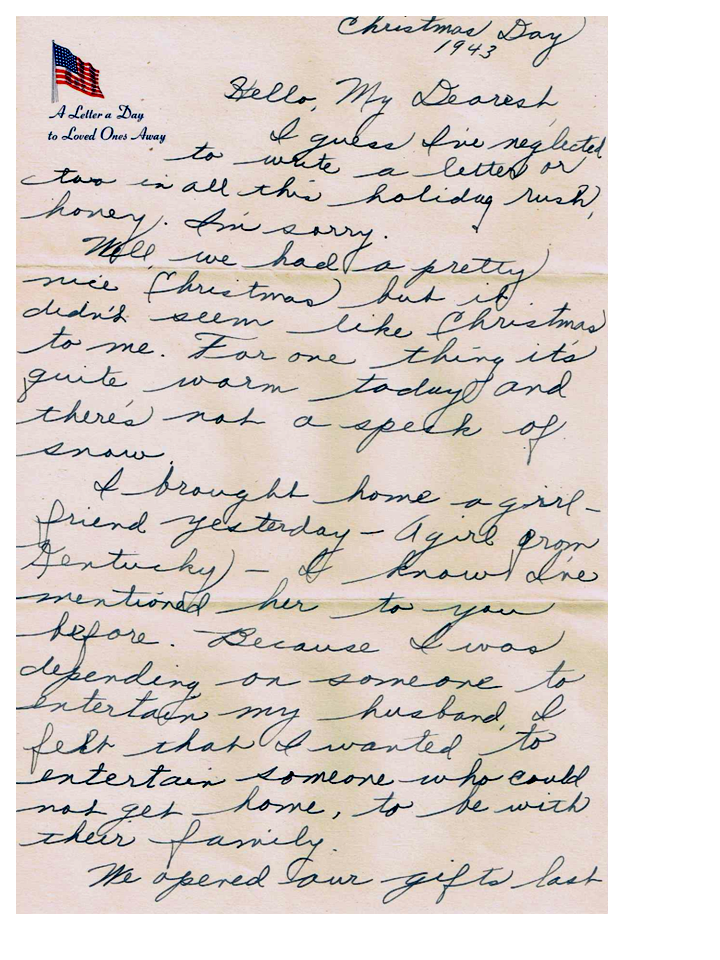 Christmas Day
1943
A Letter a Day
to Loved Ones Away
Hello, My Dearest,
I guess I've neglected
to write a letter or
two in all this holiday rush,
honey. I'm sorry.
Well, we had a pretty
nice Christmas but it
didn't seem like Christmas
to me. For one thing it's
quite warm today and
there's not a speck of
snow.
I brought home a girl-
friend yesterday - A girl from
Kentucky - I know I've
mentioned her to you
before. Because I was
depending on someone to
entertain my husband, I
felt that I wanted to
entertain someone who could
not get home, to be with
their family.
We opened our gifts last